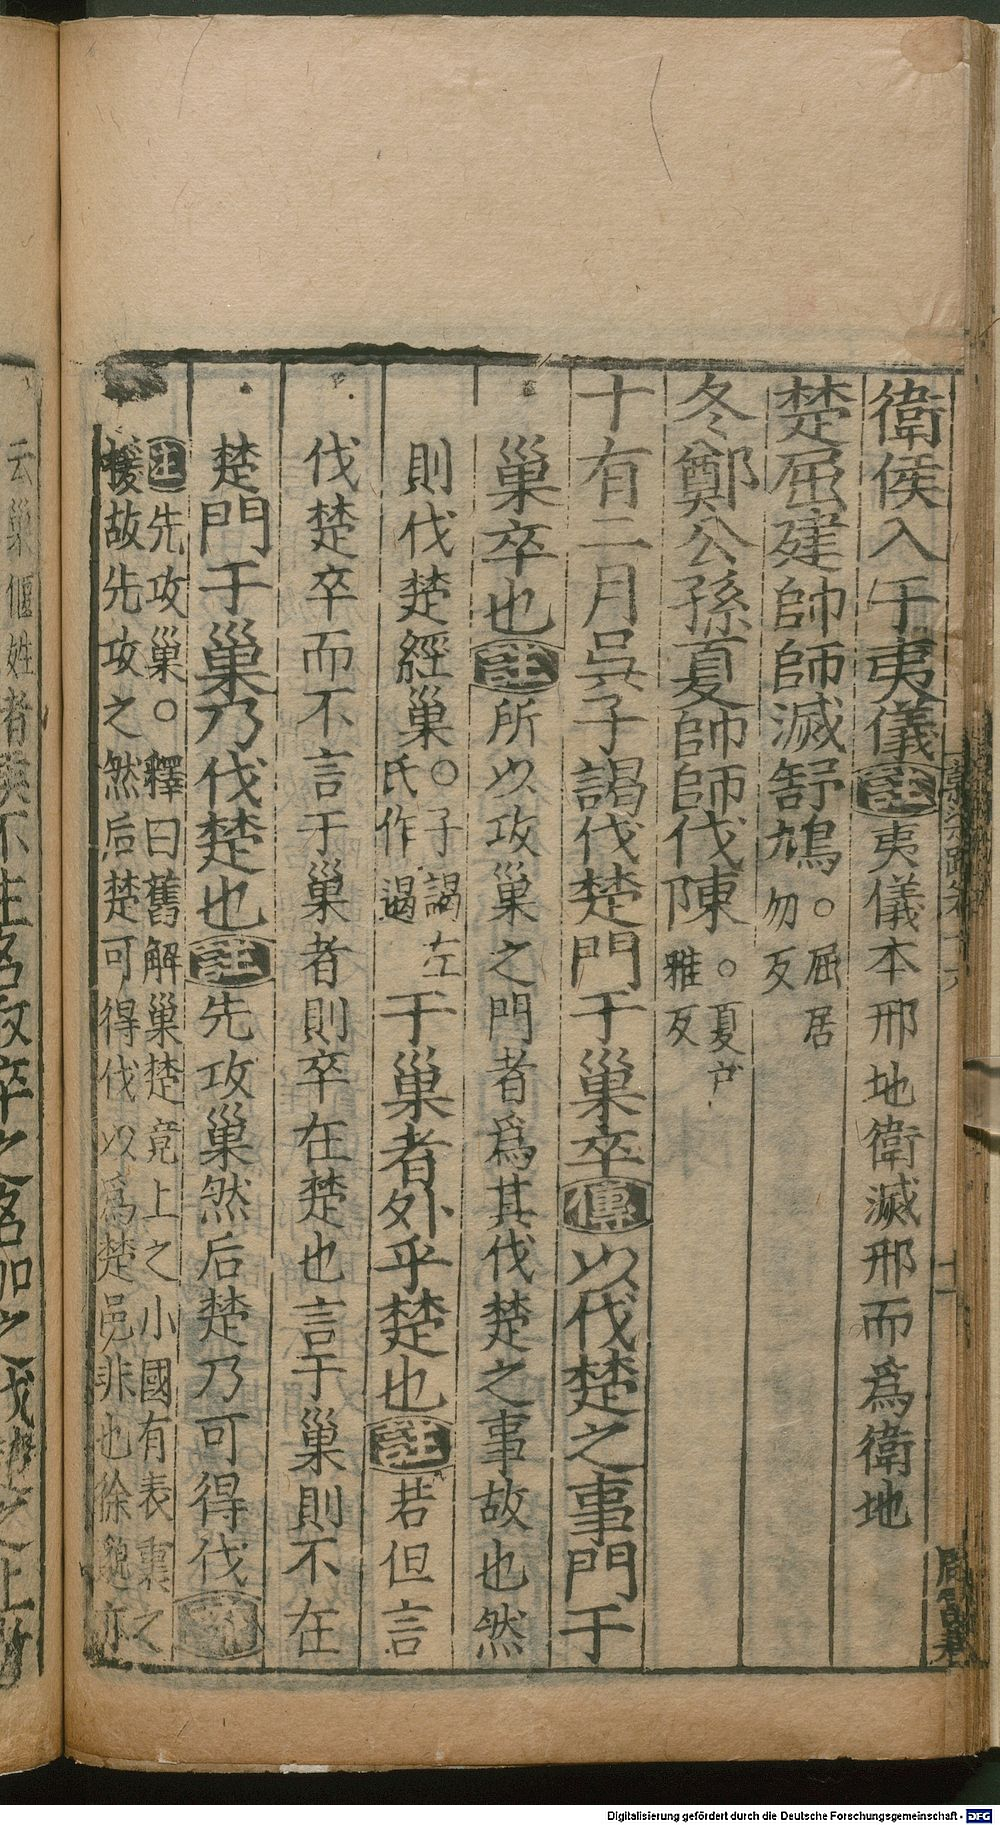 衛侯入于夷儀註夷儀本邢地衛滅邢而爲衛地
楚屈建帥師滅舒鳩○屈居
勿反
冬鄭公孫夏帥師伐陳○夏戸
雅反
十有二月吳子謁伐楚門于巢卒傳以伐楚之事門于
巢卒也註所以攻巢之門者爲其伐楚之事故也然
則伐楚經巢○子謁左
氏作遏
于巢者外乎楚也註若但言
伐楚卒而不言于巢者則卒在楚也言于巢則不在
楚門于巢乃伐楚也註先攻巢然后楚乃可得伐疏
註先攻巢○釋曰舊解巢楚竟上之小國有表裏之
援故先攻之然后楚可得伐以爲楚邑非也徐邈亦
云巢偃姓者
Digitalisierung gefördert durch die Deutsche Forschungsgemeinschaft - DFG